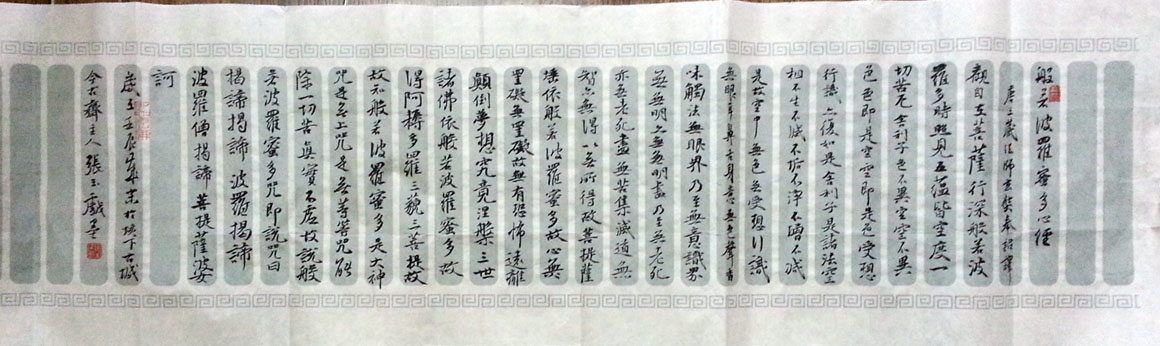 般若波羅蜜多心經
唐三藏法師玄奘奉詔譯
觀自在菩薩行深般若波
羅多時照見五蘊皆空度一
切苦厄舍利子色不異空空不異
色色即是空空即是色受想
行識亦復如是舍利子是諸法空
相不生不滅不垢不淨不增不減
是故空中無色無受想行識
無眼耳鼻舌身意無色聲香
味觸法無眼界乃至無意識界
無無明亦無無明盡乃至無老死
亦無老死盡無苦集滅道無
智亦無得以無所得故菩提薩
埵依般若波羅蜜多故心無
罣礙無罣礙故無有恐怖遠離
顛倒夢想究竟涅槃三世
諸佛依般若波羅蜜多故
得阿耨多羅三藐三菩提故
故知般若波羅蜜多是大神
咒是無上咒是無等等咒能
除一切苦真實不虛故說般
若波羅蜜多咒即說咒曰
揭諦揭諦 波羅揭諦
波羅僧揭諦 菩提薩婆
訶
歲至壬辰年末於城下古城
今古齋主人張玉戲墨